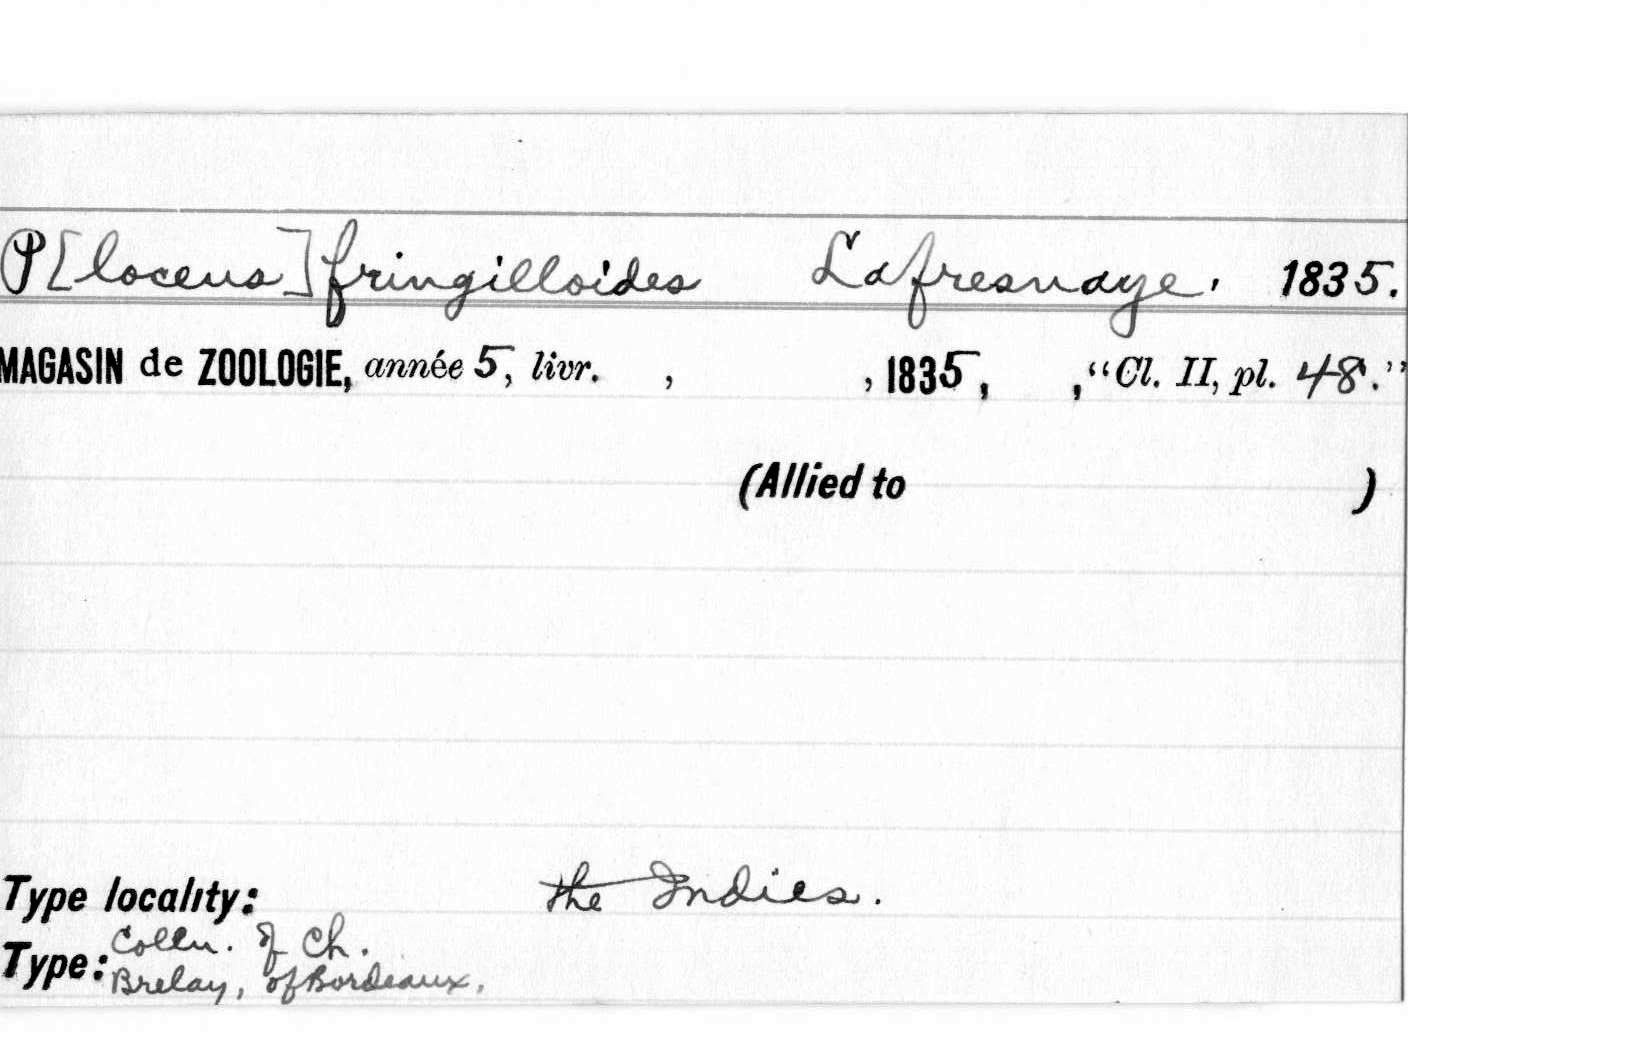 P[loceus] fringilloides Lafresnaye, 1835.
MAGASIN de ZOOLOGIE, année 5, livr. , , 1835, , "Cl. II, pl. 48."
(Allied to )
Type locality: the Indies.
Type: Colln. of Ch.
Brelay, of Bordeaux.